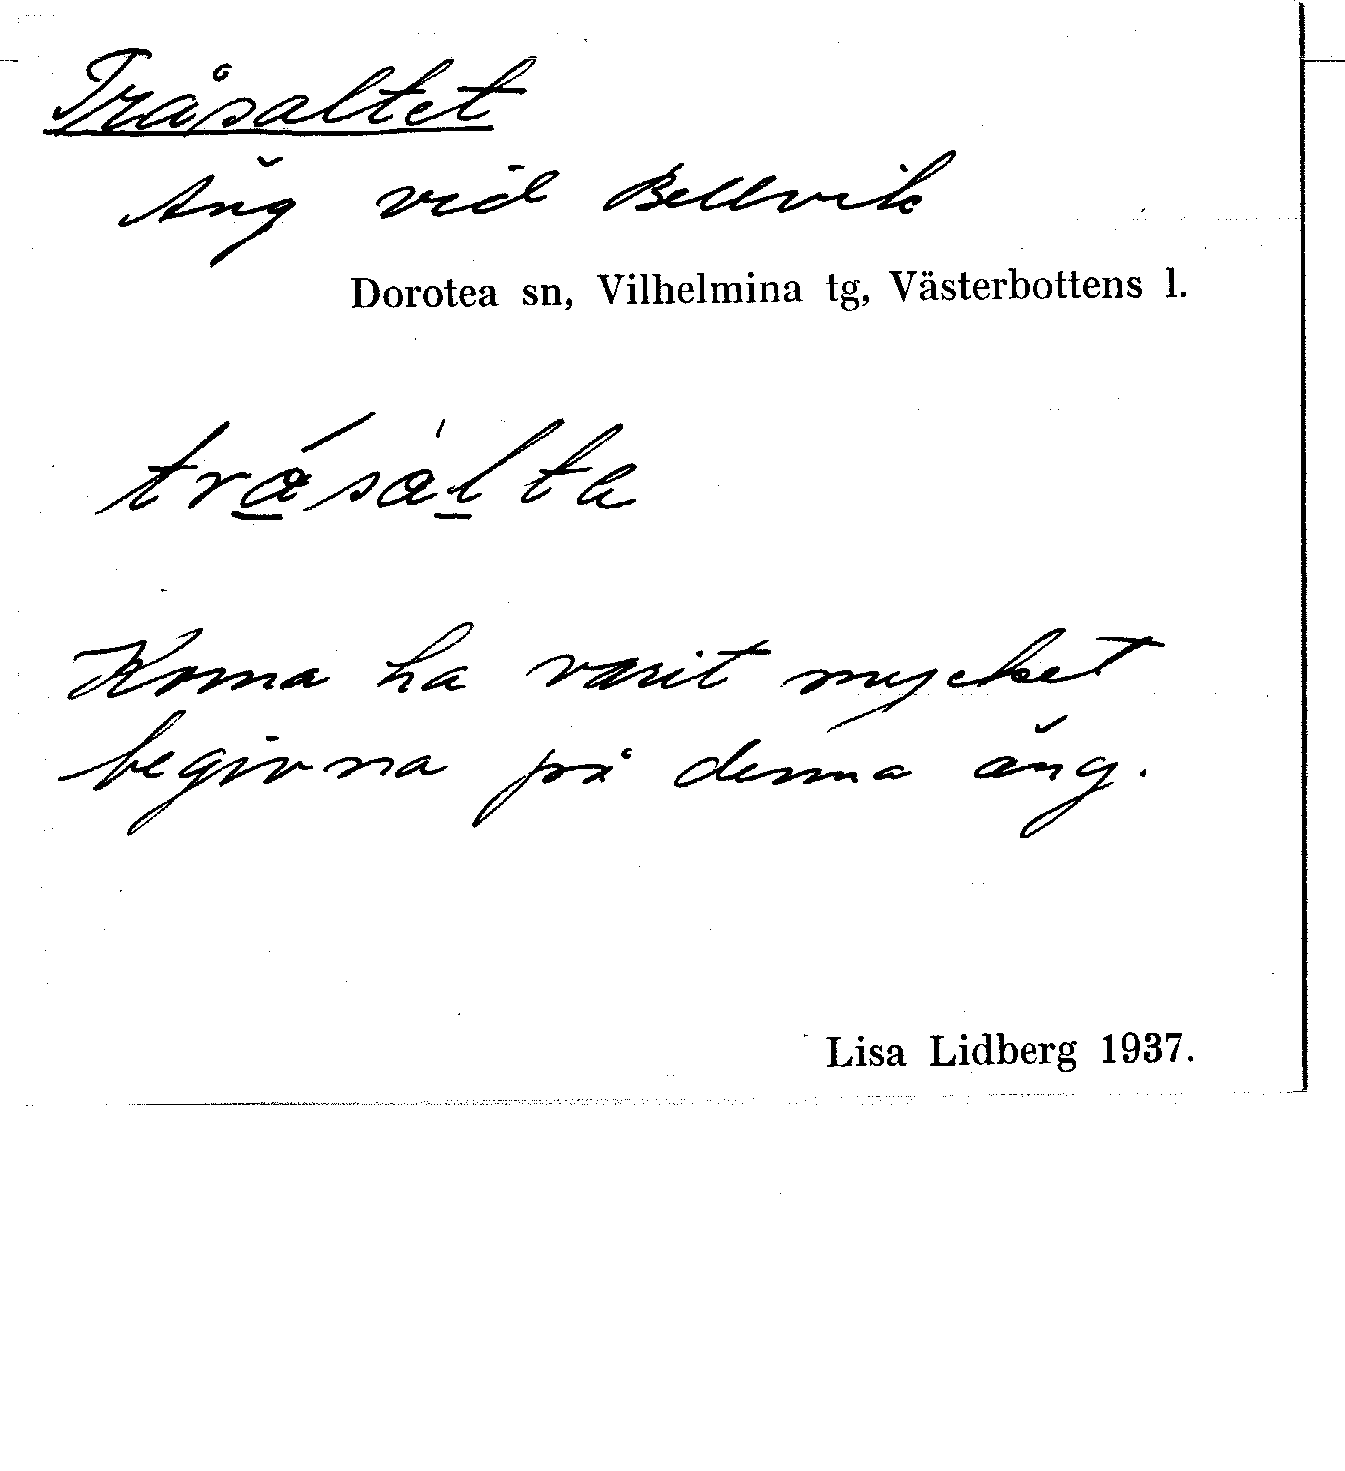 Tråsaltet
Äng vid Bellvik
Dorotea sn, Vilhelmina tg, Västerbottens l.
trásàlta
Korna ha varit mycket
begivna på denna äng.
Lisa Lidberg 1937.